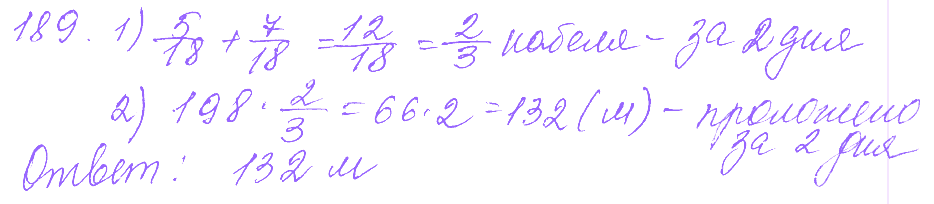 189. 1) 5/18 + 7/18 = 12/18 = 2/3 кабеля - за 2 дня
2) 198 · 2/3 = 66 · 2 = 132 (м) - проложено
за 2 дня
Ответ: 132 м